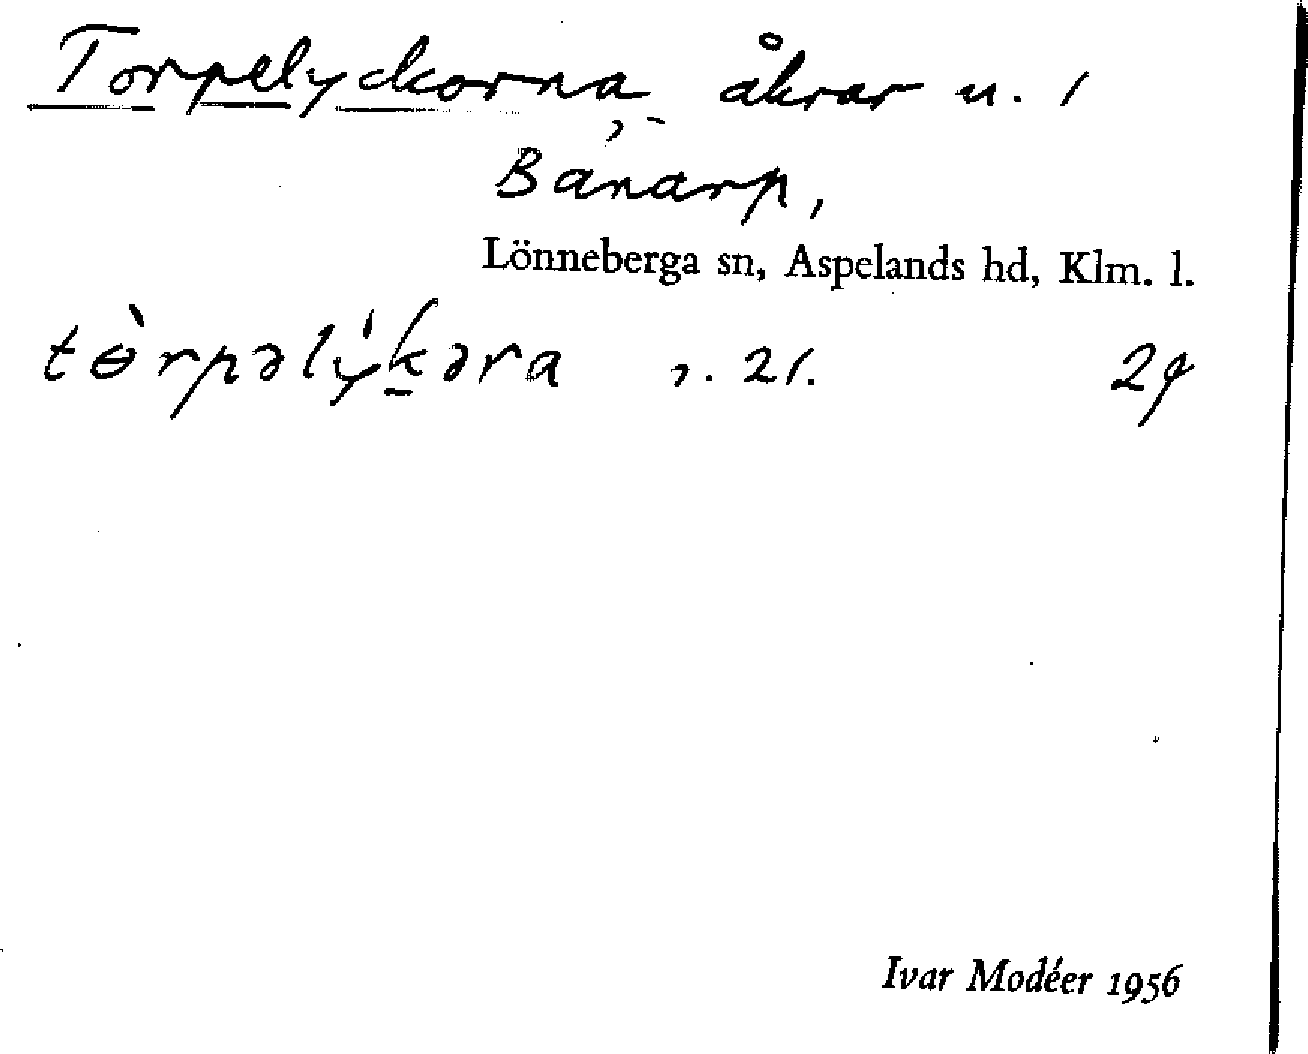 Torpelyckorna, åkrar u. 1
Bånarp,
Lönneberga sn, Aspelands hd, Klm. l.
tɵ̀rpəlý̍k̠əra
Ivar Modéer 1956